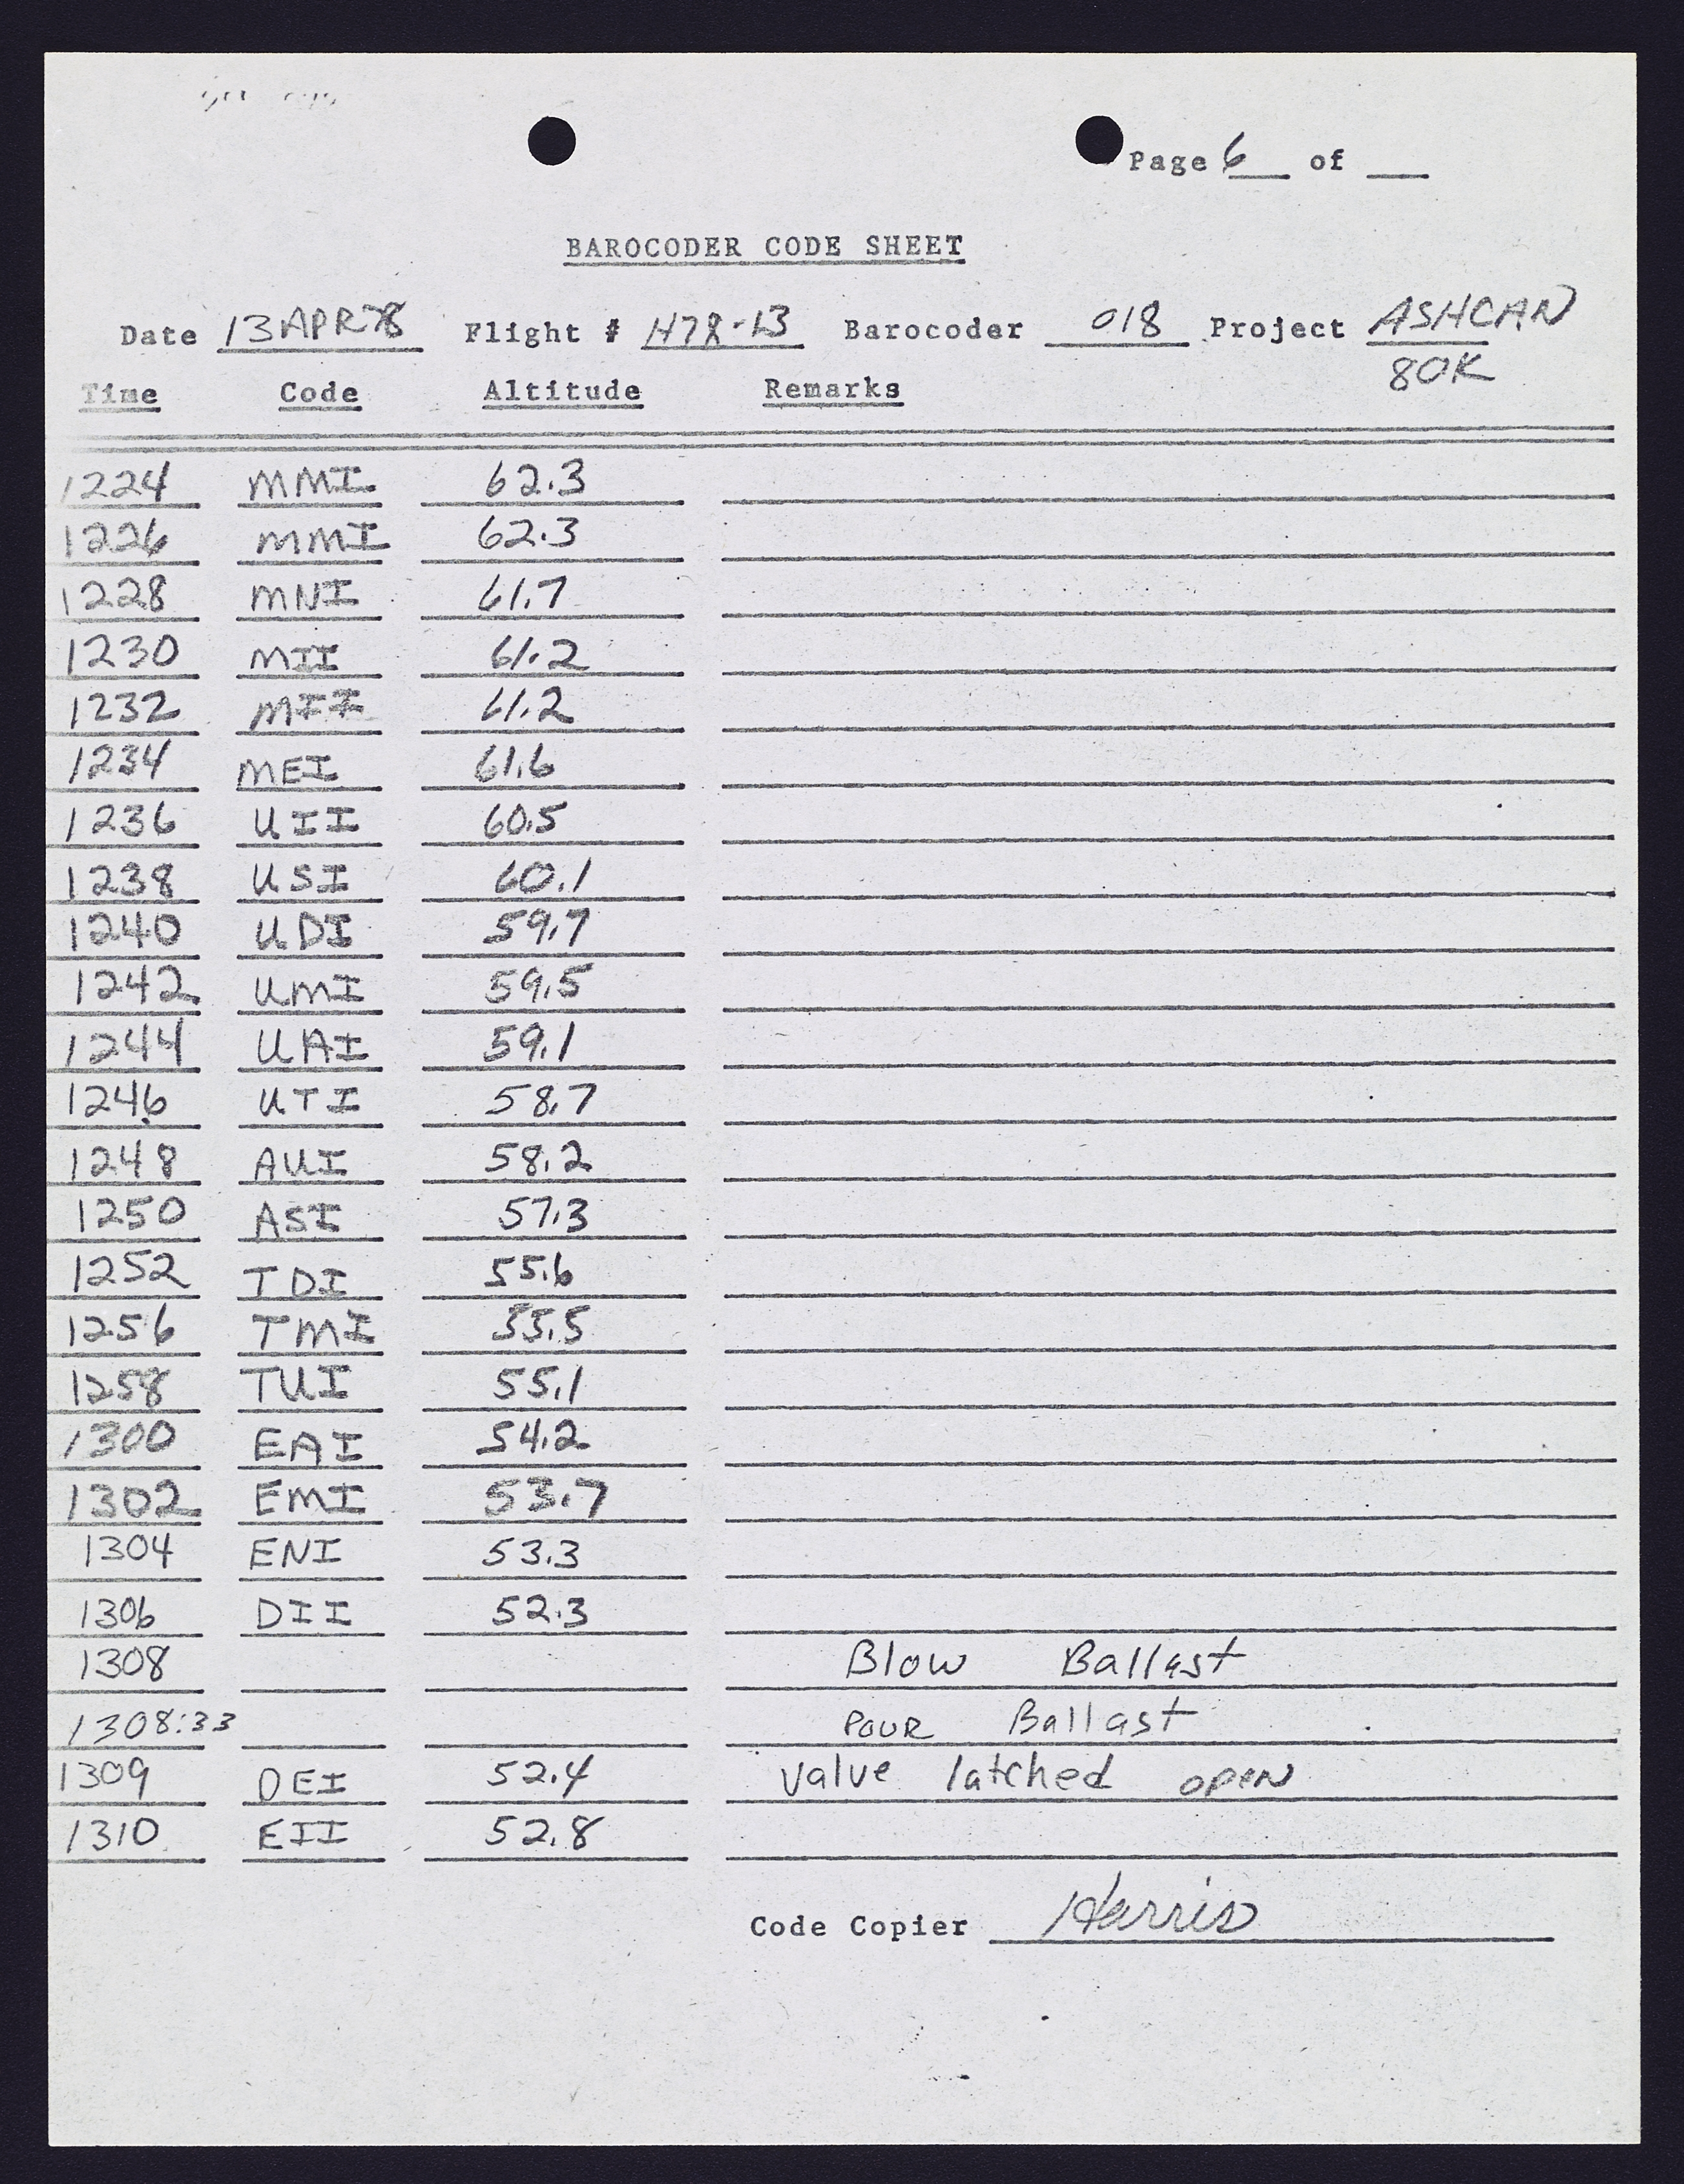 Page 6 of
BAROCODER CODE SHEET
Date 13 APR 78 Flight # H78-13 Barocoder 018 Project ASHCAN
80K
Time Code Altitude Remarks
1224 MMI 62.3
1226 MMI 62.3
1228 MNI 61.7
1230 MII 61.2
1232 MII 61.2
1234 MEI 61.6
1236 UII 60.5
1238 USI 60.1
1240 UDI 59.7
1242 UMI 59.5
1244 UAI 59.1
1246 UTI 58.7
1248 AUI 58.2
1250 ASI 57.3
1252 TDI 55.6
1256 TMI 55.5
1258 TUI 55.1
1300 EAI 54.2
1302 EMI 53.7
1304 ENI 53.3
1306 DII 52.3
1308 Blow Ballast
1308:33 POUR Ballast
1309 DEI 52.4 Valve latched open
1310 EII 52.8
Code Copier Harris